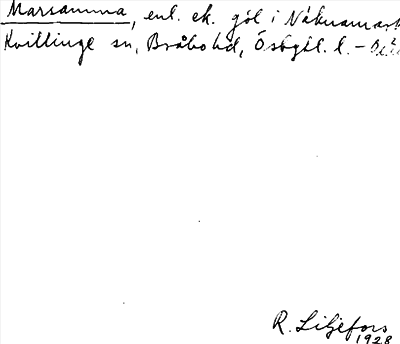 Marsamma, enl. ek. göl i
Kvillinge sn, Bråbo hd, Östgöl. l. –
R. Liljefors
1928